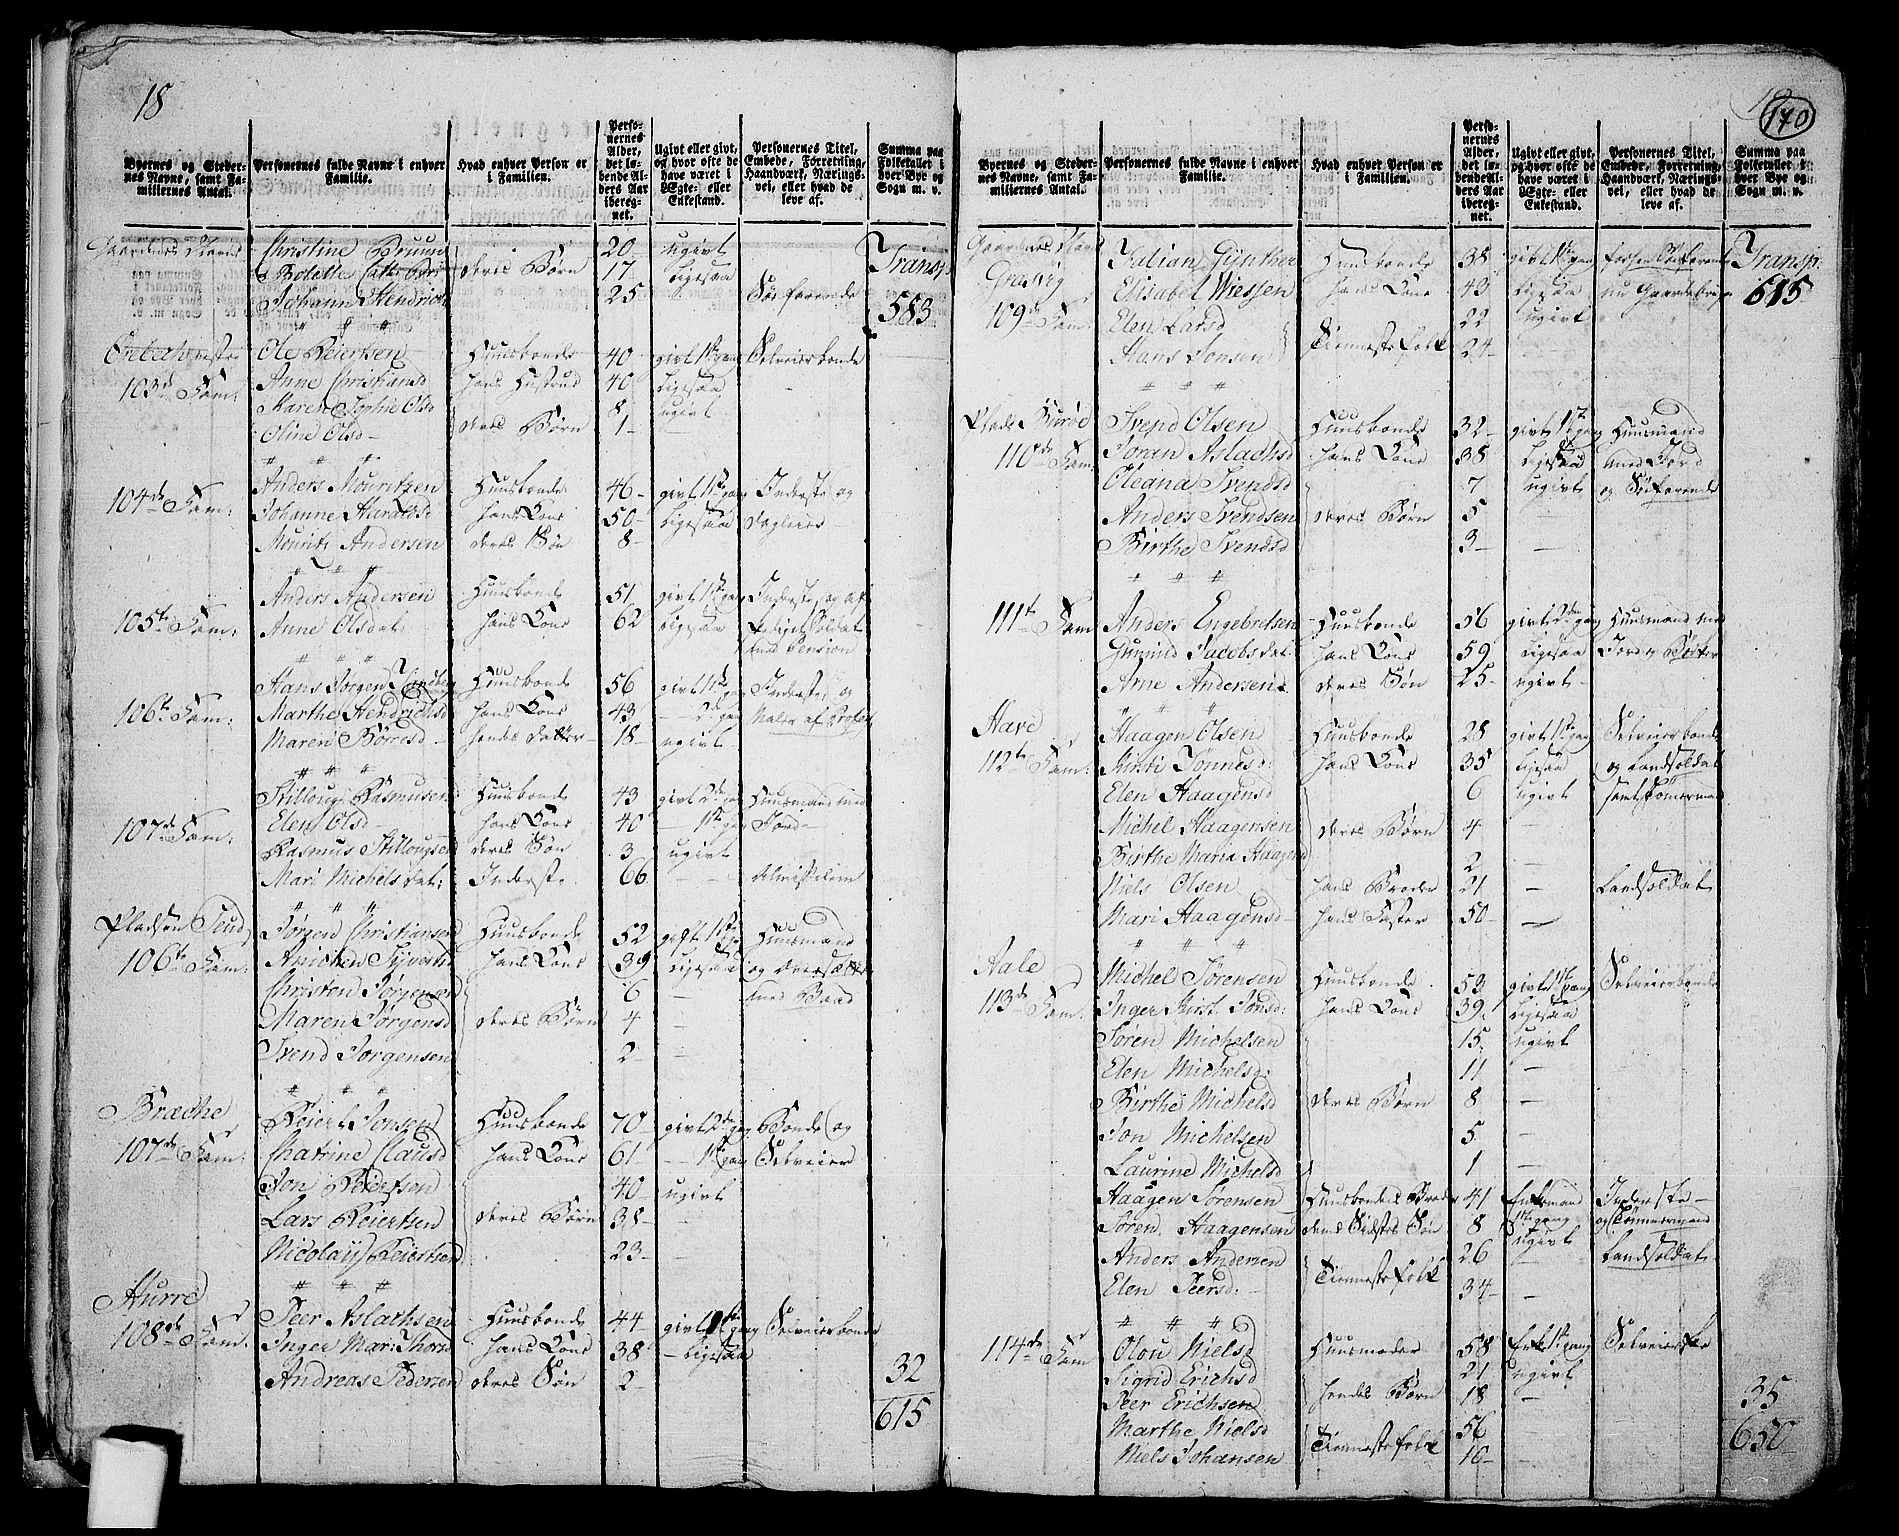 18
Byernes og Stedernes Navne, samt Familiernes Antal. | Personernes fulde Navne i enhver Familie. | Hvad enhver Person er i Familien. | Personernes Alder, det løbende Alders Aar iberegnet. | Ugivt eller givt, og hvor ofte de have været i Ægte- eller Enkestand. | Personernes Titel, Embede, Forretning, Haandværk, Næringsvei, eller hvad de leve af. | Summa paa Folketallet i hver Bye og Sogn m. v.
Christine Bruun | | 20 | ugivt | | Transp:
Bolette Cath: | deres Børn | 17 | Ligesaa
Johannes Hendrichs | | 25 | | Søefarende | 583
Ole Reiertsen | Huusbonde | 40 | givt 1te gang | Selveierbonde
103de Fam: | Anne Christiansd | hans Hustrue | 40 | Ligesaa
Maren Sophie Olsd | | 8 | ugivt
Oline Olsd | deres Børn | 1
Anders Mouritzen | Huusbonde | 46 | givt 1te gang | Inderste og
104de Fam: | Johanne | hans Kone | 50 | Ligesaa | dagleier
Mouritz Andersen | deres Søn | 8
Anders Andersen | Huusbonde | 51 | givt 1te gang | Inderste, og af
105te Fam: | Anne Olsdat: | hans Kone | 62 | Ligesaa | Soldat
med Pension
Hans Jørgen | Huusbonde | 56 | givt 1te gang | Inderste, og
106te Fam: | Marthe Hendrichsd | hans Kone | 43 | 2de gang | Maler af
Maren Børresd | hendes datter | 18 | ugivt
Stilloug Rasmusen | Huusbonde | 43 | givt 2de gang | Huusmand med
107de Fam: | Elen Olsd | hans Kone | 40 | 1te gang | Jord
Rasmus Stillougsen | deres Søn | 3 | ugivt
Mari Michelsdat: | Inderste | 66
Pladsen | Jørgen Christiansen | Huusbonde | 52 | gift 1te gang | Huusmand
106te Fam: | Anichen | hans Kone | 39 | Ligesaa | og
Christen Jørgensen | | 6
Maren Jørgensd | deres Børn | 4
Svend Jørgensen | | 2
Bræche | Reiert Jonsen | Huusbonde | 70 | givt 2de gang | Bonde og
107de Fam: | Chatrine Clausd | hans Kone | 61 | 1te gang | Selveier
Jon Reiertsen | | 40 | ugivt
Lars Reiertsen | deres Børn | 38
Nicolay Reiertsen | | 23
Hurre | Peer Aslachsen | Huusbonde | 44 | givt 1te gang | Selveierbonde
108de Fam: | Inger Mar: Thorsd | hans Kone | 38 | Ligesaa | | 32
Andreas Pedersen | deres Søn | 2 | | | 615
170
Byernes og Stedernes Navne, samt Familiernes Antal. | Personernes fulde Navne i enhver Familie. | Hvad enhver Person er i Familien. | Personernes Alder, det løbende Alders Aar iberegnet. | Ugivt eller givt, og hvor ofte de have været i Ægte- eller Enkestand. | Personernes Titel, Embede, Forretning, Haandværk, Næringsvei, eller hvad de leve af. | Summa paa Folketallet i hver Bye og Sogn m. v.
Falian Günther | Huusbonde | 38 | givt 1te gang | Transp:
Elisabet Wiessen | hans Kone | 43 | Ligesaa | nu Gaardebruger | 615
109de Fam: | Elen Larsd | | 22 | ugivt
Hans Jonsen | Tienneste folk | 24
Svend Olsen | Huusbonde | 32 | givt 1te gang | Huusmand
110de Fam: | Joran Aslachsd | hans Kone | 38 | Ligesaa | med Jord
Oleana Svendsd | | 7 | ugivt | og Søefarende
Anders Svendsen | deres Børn | 5
Birthe Svendsd | | 3
111te Fam | Anders Engebretsen | Huusbonde | 56 | givt 2de gang | Huusmand med
Gunnild Jacobsdat: | hans Kone | 59 | Ligesaa | Jord og
Arne Andersen | deres Søn | 25 | ugivt
Have | Haagen Olsen | Huusbonde | 28 | givt 1te gang | Selveierbonde
112te Fam: | Kirsti Tønnesd: | hans Kone | 35 | Ligesaa | og Landsoldat
Elen Haagensd | | 6 | ugivt | samt Tømermand
Michel Haagensen | deres Børn | 4
Birthe Maria Haagensd | | 2
Niels Olsen | hans Broder | 21 | | Landsoldat
Mari Haagensd | hans Faster | 50
Aale | Michel Sørensen | Huusbonde | 53 | givt 1te gang | Selveierbonde
113de Fam: | Inger Kirst: Jonsd: | hans Kone | 39 | Ligesaa
Søren Michelsen | | 15 | ugivt
Elen Michelsd: | | 11
Birthe Michelsd | deres Børn | 8
Jon Michelsen | | 5
Laurine Michelsd | | 1
Haagen Sørensen | Huusbondens Broder | 41 | Enkemand | Inderste
Søren Haagensen | dens Sidstes Søn | 8 | 1te gang | og Tømmermand
Anders Andersen | | 26 | ugivt | Landsoldat
Elen Peersd: | Tienneste folk | 34
114de Fam | Olou Nielsd | Huusmoder | 58 | Enke 1te gang
Sigrid Erichsd | | 21 | ugivt
Peer Erichsen | hendes Børn | 18 | | | 35
Marthe Nielsd | | 56 | | | 650
Niels Johansen | Tienneste folk | 16